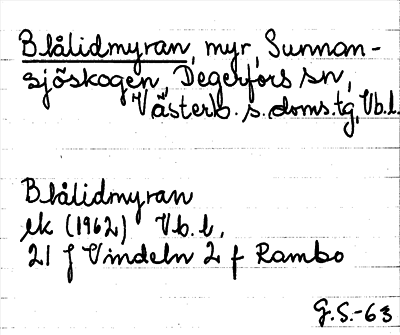 Blålidmyran, myr, Sunnan-
sjöskogen, Degerfors sn,
Västerb. s. doms.tg, Vb.l.
Blålidmyran
ek (1962) Vb.l,
21 J Vindeln 2 f Rambo
G.S.-63